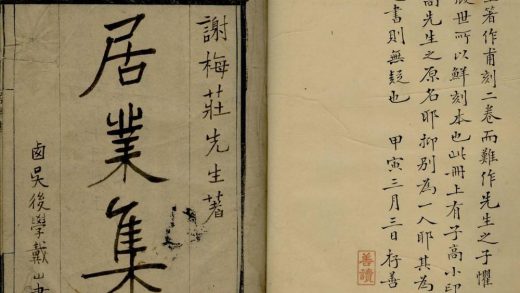 生著作甫刻二卷而難作先生之子懼
世所以鮮刻本也此冊上有子高小印
高先生之原名耶抑別為一人耶其為
書則無疑也 甲寅三月三日存善
善讀
謝梅莊先生著
居業集
鹵吳後學戴山